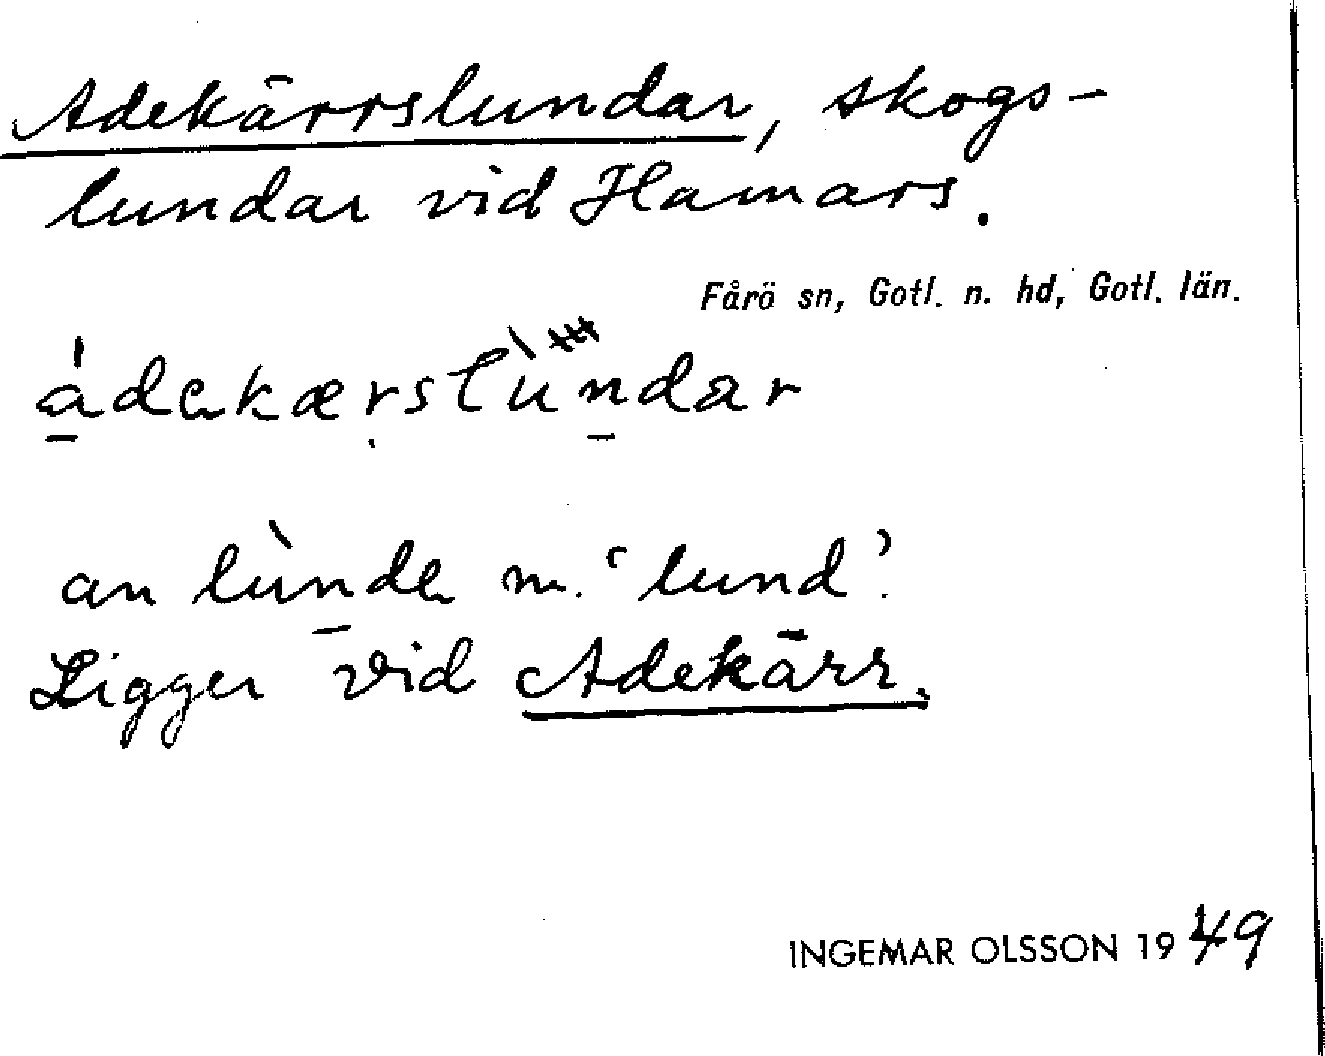 Adekärrslundar, skogs-
lundar vid Hamars.
Fårö sn, Gotl. n. hd, Gotl. län.
ádekærslùndar
an lùnde m. ‘lund’.
Ligger vid Adekärr.
INGEMAR OLSSON 1949